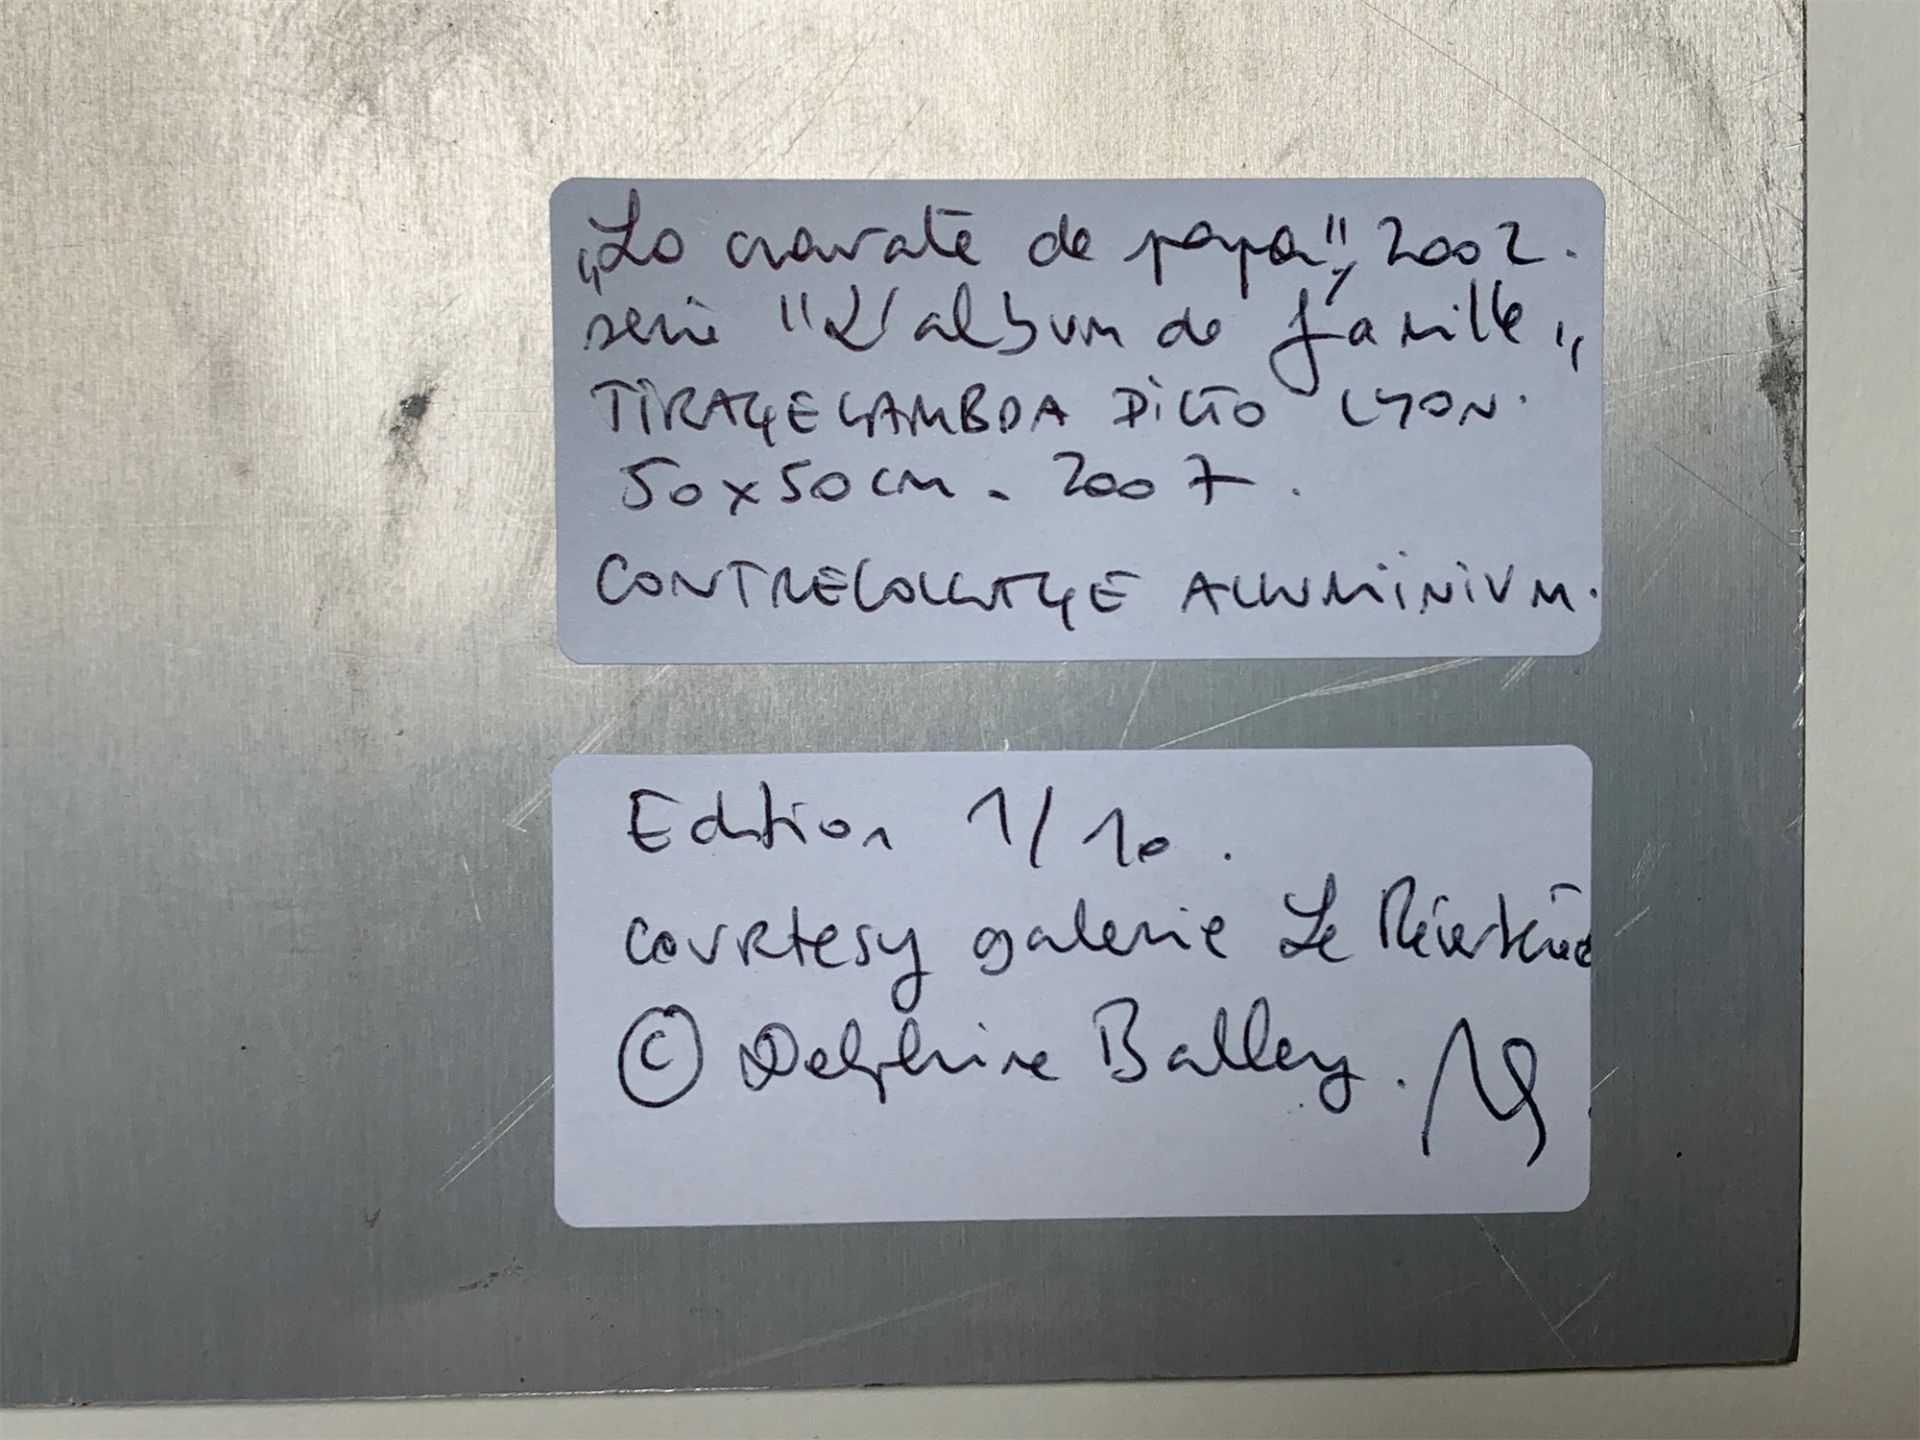 „La cravate de papa", 2002.
serie "L'album de famille"
TIRAGE LAMBDA PICTO LYON.
50x50cm. 2007.
CONTRECOLLAGE ALUMINIUM.
Edition 1/10.
courtesy galerie Le Réverbère
© Delphine Balley.